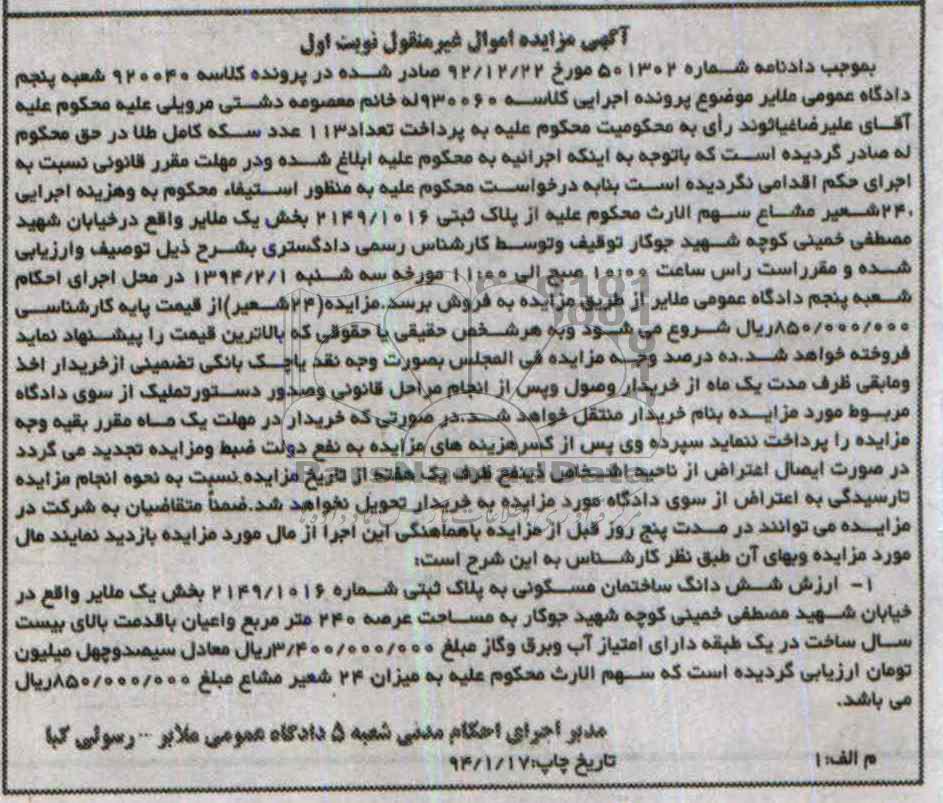 آگهی مزایده اموال غیرمنقول نوبت اول
بموجب دادنامه شماره ۵۰۱۳۰۲ مورخ ۹۲/۱۲/۲۲ صادر شده در پرونده کلاسه ۹۲۰۰۴۰ شعبه پنجم
دادگاه عمومی ملایر موضوع پرونده اجرایی کلاسه ۹۳۰۰۶۰له خانم معصومه دشتی مرویلی علیه محکوم علیه
آقای علیرضاغیاثوند رأی به محکومیت محکوم علیه به پرداخت تعداد۱۱۳ عدد سکه کامل طلا در حق محکوم
له صادر گردیده است که باتوجه به اینکه اجرائیه به محکوم علیه ابلاغ شده ودر مهلت مقرر قانونی نسبت به
اجرای حکم اقدامی نگردیده است بنابه درخواست محکوم علیه به منظور استیفاء محکوم به وهزینه اجرایی
،۲۴شعیر مشاع سهم الارث محکوم علیه از پلاک ثبتی ۲۱۴۹/۱۰۱۶ بخش یک ملایر واقع درخیابان شهید
مصطفی خمینی کوچه شهید جوکار توقیف وتوسط کارشناس رسمی دادگستری بشرح ذیل توصیف وارزیابی
شده و مقرراست راس ساعت ۱۰:۰۰ صبح الی ۱۱:۰۰ مورخه سه شنبه ۱۳۹۴/۲/۱ در محل اجرای احکام
شعبه پنجم دادگاه عمومی ملایر از طریق مزایده به فروش برسد.مزایده(۲۴شعیر)از قیمت پایه کارشناسی
۸۵۰/۰۰۰/۰۰۰ریال شروع می شود وبه هرشخص حقیقی یا حقوقی که بالاترین قیمت را پیشنهاد نماید
فروخته خواهد شد.ده درصد وجه مزایده فی المجلس بصورت وجه نقد یاچک بانکی تضمینی ازخریدار اخذ
ومابقی ظرف مدت یک ماه از خریدار وصول وپس از انجام مراحل قانونی وصدور دستورتملیک از سوی دادگاه
مربوط مورد مزایده بنام خریدار منتقل خواهد شد.در صورتی که خریدار در مهلت یک ماه مقرر بقیه وجه
مزایده را پرداخت ننماید سپرده وی پس از کسرهزینه های مزایده به نفع دولت ضبط ومزایده تجدید می گردد
در صورت ایصال اعتراض از ناحیه اشخاص ذینفع ظرف یک هفته از تاریخ مزایده نسبت به نحوه انجام مزایده
تارسیدگی به اعتراض از سوی دادگاه مورد مزایده به خریدار تحویل نخواهد شد.ضمناً متقاضیان به شرکت در
مزایده می توانند در مدت پنج روز قبل از مزایده باهماهنگی این اجرا از مال مورد مزایده بازدید نمایند مال
مورد مزایده وبهای آن طبق نظر کارشناس به این شرح است:
۱- ارزش شش دانگ ساختمان مسکونی به پلاک ثبتی شماره ۲۱۴۹/۱۰۱۶ بخش یک ملایر واقع در
خیابان شهید مصطفی خمینی کوچه شهید جوکار به مساحت عرصه ۲۴۰ متر مربع واعیان باقدمت بالای بیست
سال ساخت در یک طبقه دارای امتیاز آب وبرق وگاز مبلغ ۳/۴۰۰/۰۰۰/۰۰۰ریال معادل سیصدوچهل میلیون
تومان ارزیابی گردیده است که سهم الارث محکوم علیه به میزان ۲۴ شعیر مشاع مبلغ ۸۵۰/۰۰۰/۰۰۰ریال
می باشد.
مدیر اجرای احکام مدنی شعبه ۵ دادگاه عمومی ملایر ... رسولی کیا
م الف:۱ تاریخ چاپ:۹۴/۱/۱۷